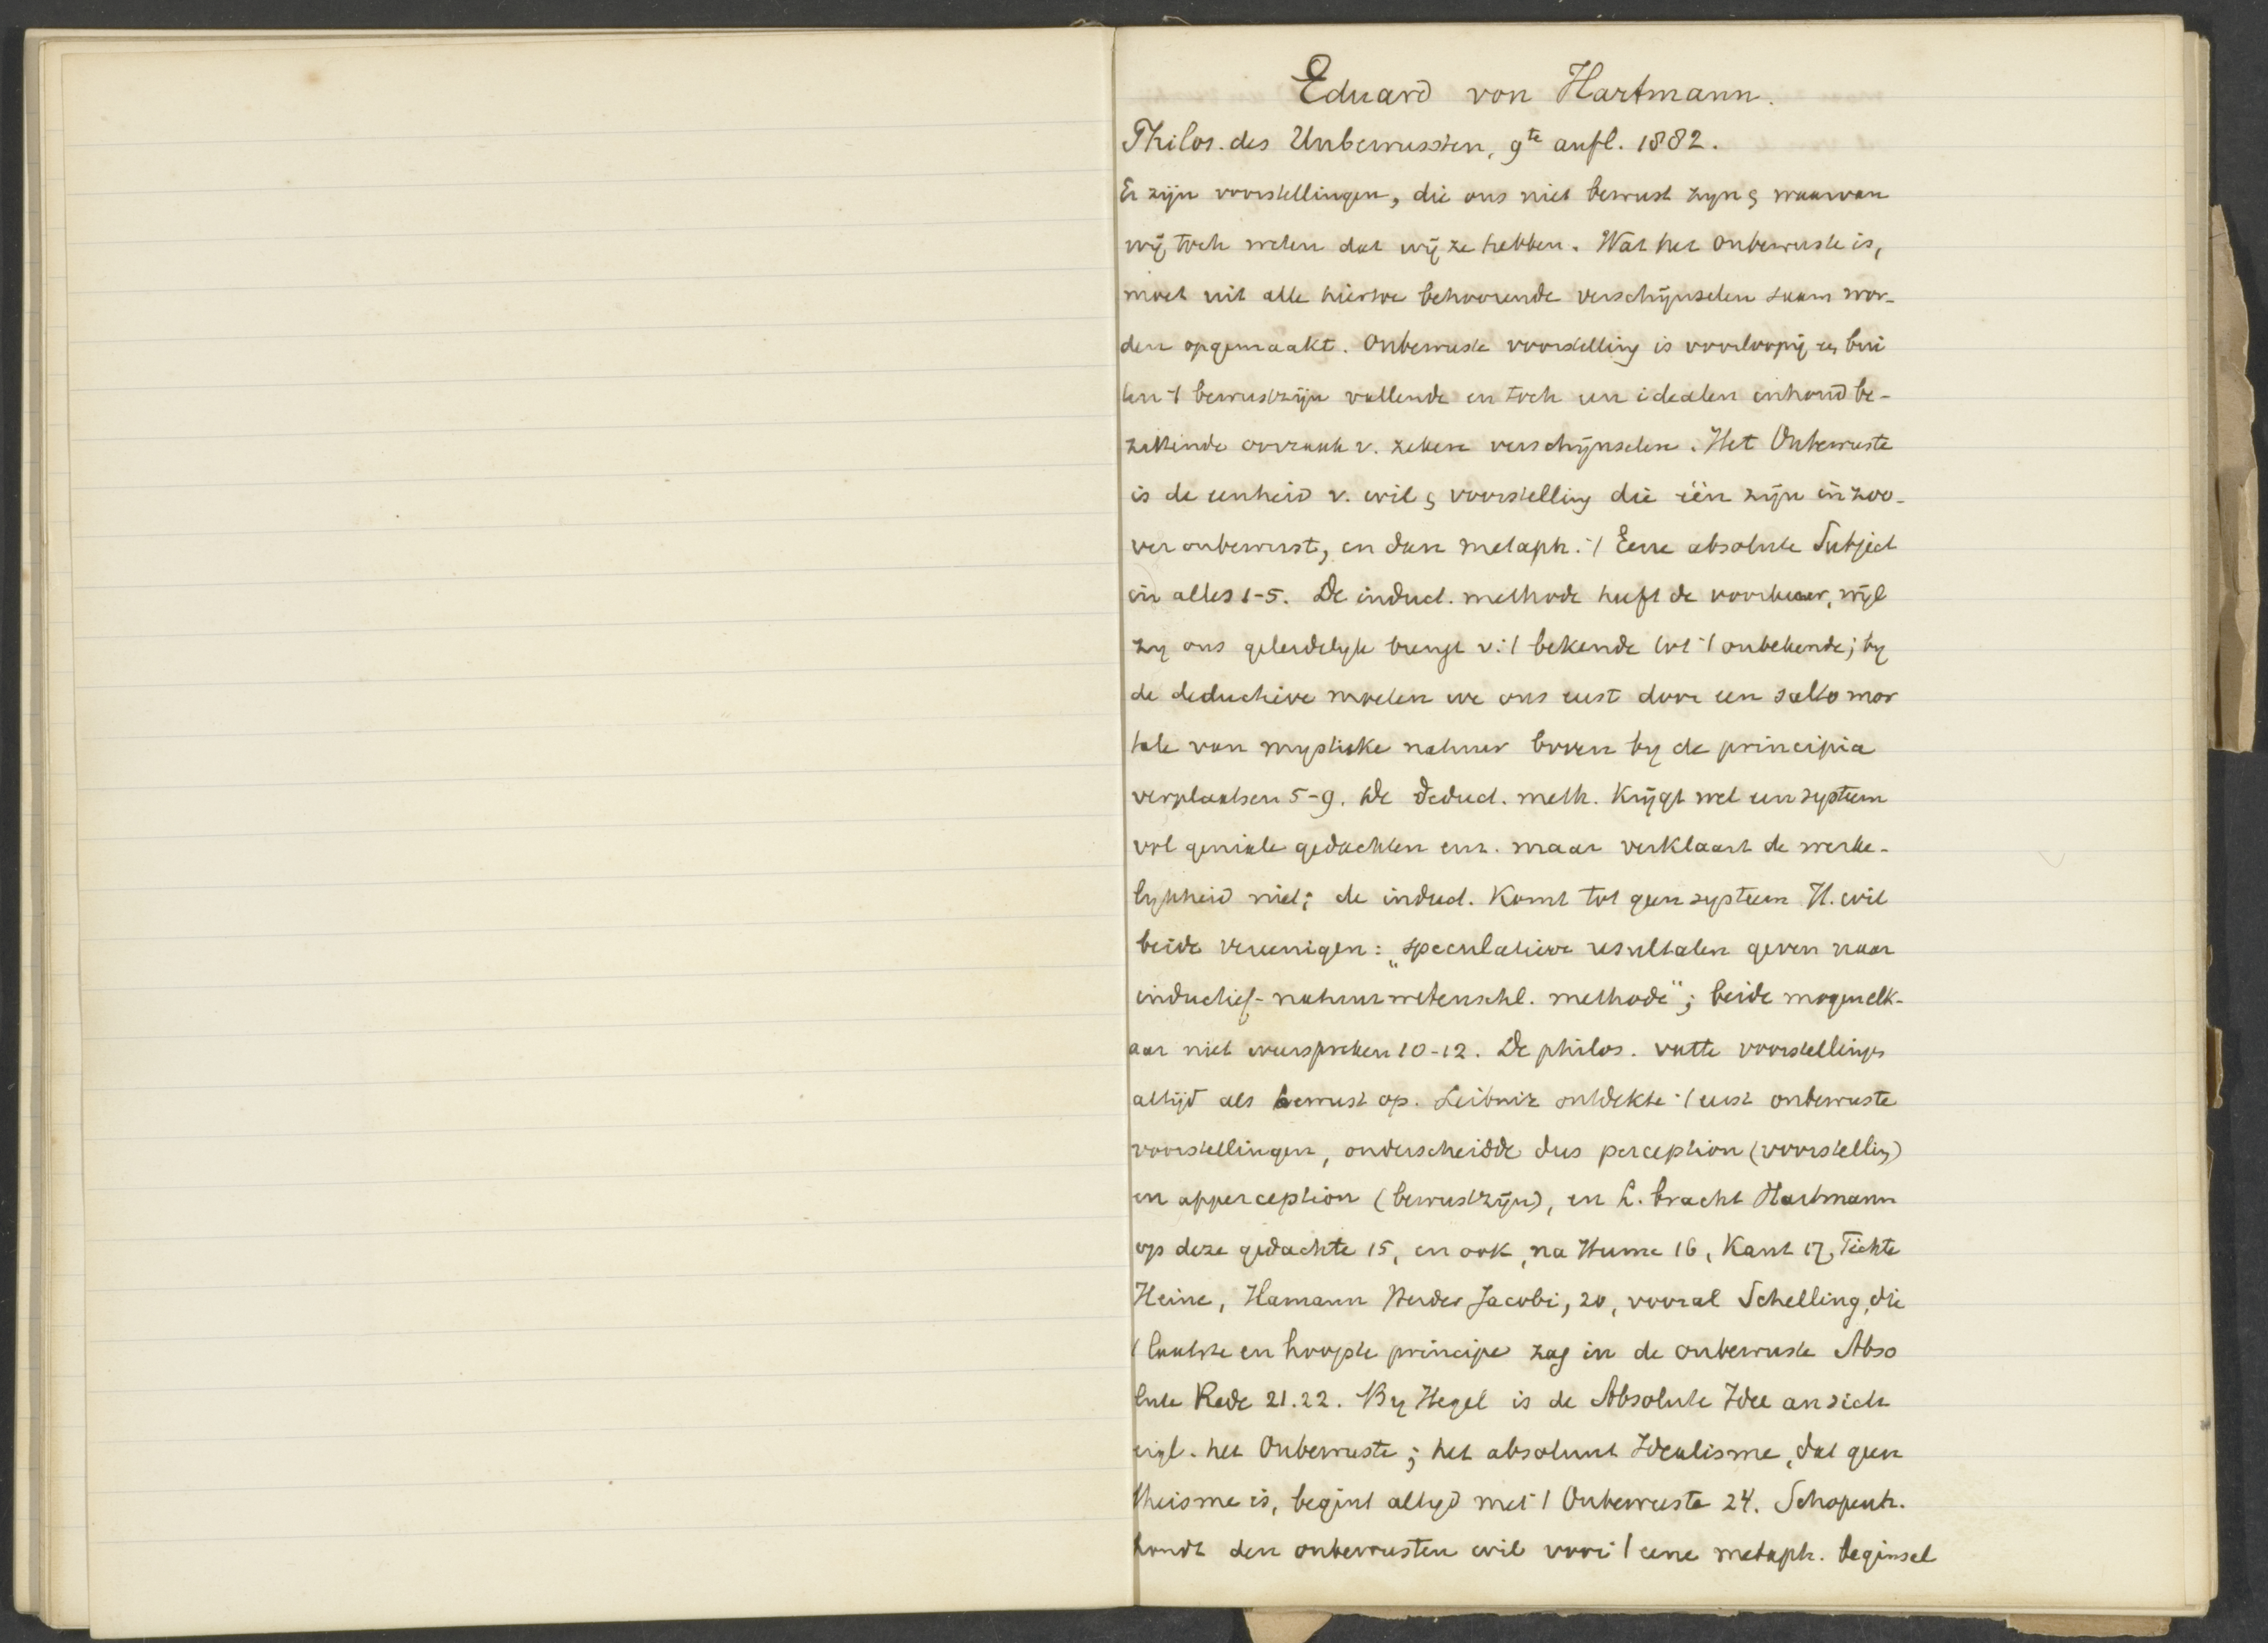 Eduard von Hartmann.
Philos. des Unbewussten, 9te aufl. 1882.
Er zijn voorstellingen, die ons niet bewust zyn & waarvan
wij toch weten dat wij ze hebben. Wat het onbewuste is,
moet uit alle hiertoe behoorende verschijnselen saam wor-
den opgemaakt. Onbewuste voorstelling is voorloopig een bui
ten 't bewustzijn vallende en toch een idealen inhoud be-
zittende oorzaak v. zekere verschijnselen. Het Onbewuste
is de eenheid v. wil & voorstelling die één zijn in zoo-
ver onbewust, en dan metaph. 't Eene absolute Subject
in alles 1-5. De induct. methode heeft de voorkeur, wijl
zij ons geleidelyk brengt v. 't bekende tot 't onbekende; by
de deductieve moeten we ons eerst door een salto mor
tale van mystieke natuur boven by de principia
verplaatsen 5-9. De deduct. meth. krijgt wel een systeem
vol geniale gedachten enz. maar verklaart de werke-
lykheid niet; de induct. komt tot geen systeem. H. wil
beide vereenigen: „speculatieve resultaten geven naar
inductief-natuurwetenschl. methode"; beide mogen elk-
aar niet weerspreken 10-12. De philos. vatte voorstellingen
altijd als bewust op. Leibniz ontdekte 't eerst onbewuste
voorstellingen, onderscheidde dus perception (voorstelling)
en apperception (bewustzijn), en L. bracht Hartmann
op deze gedachte 15, en ook, na Hume 16, Kant 17, Fichte
Heine, Hamann Herder Jacobi, 20, vooral Schelling, die
't laatste en hoogste principe zag in de onbewuste Abso
lute Rede 21.22. By Hegel is de Absolute Idee an sich
eigl. het Onbewuste; het absoluut Idealisme, dat geen
theisme is, begint altyd met 't Onbewuste 24. Schopenh.
houdt den onbewusten wil voor 't eene metaph. beginsel